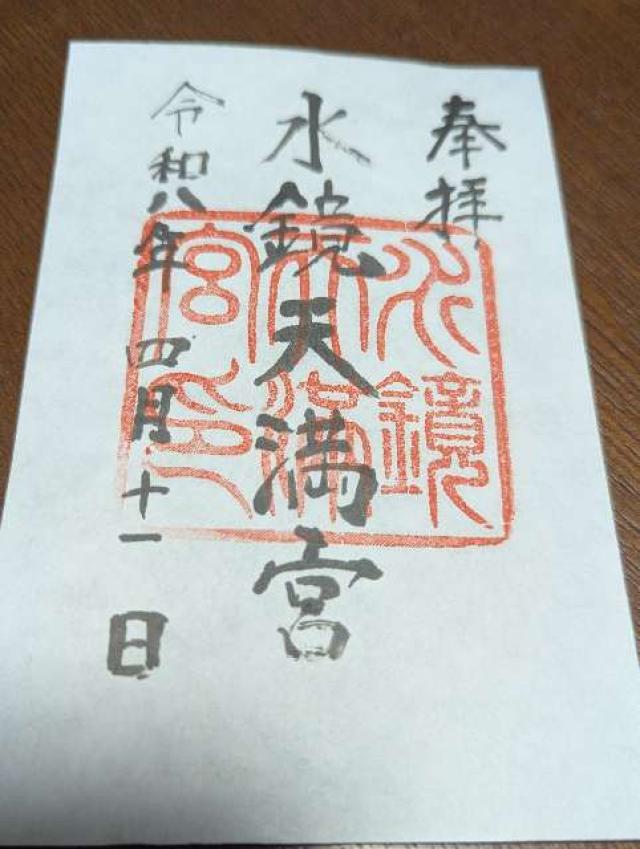 奉拝
水鏡天満宮
令和八年四月十一日
水鏡
天満
宮印